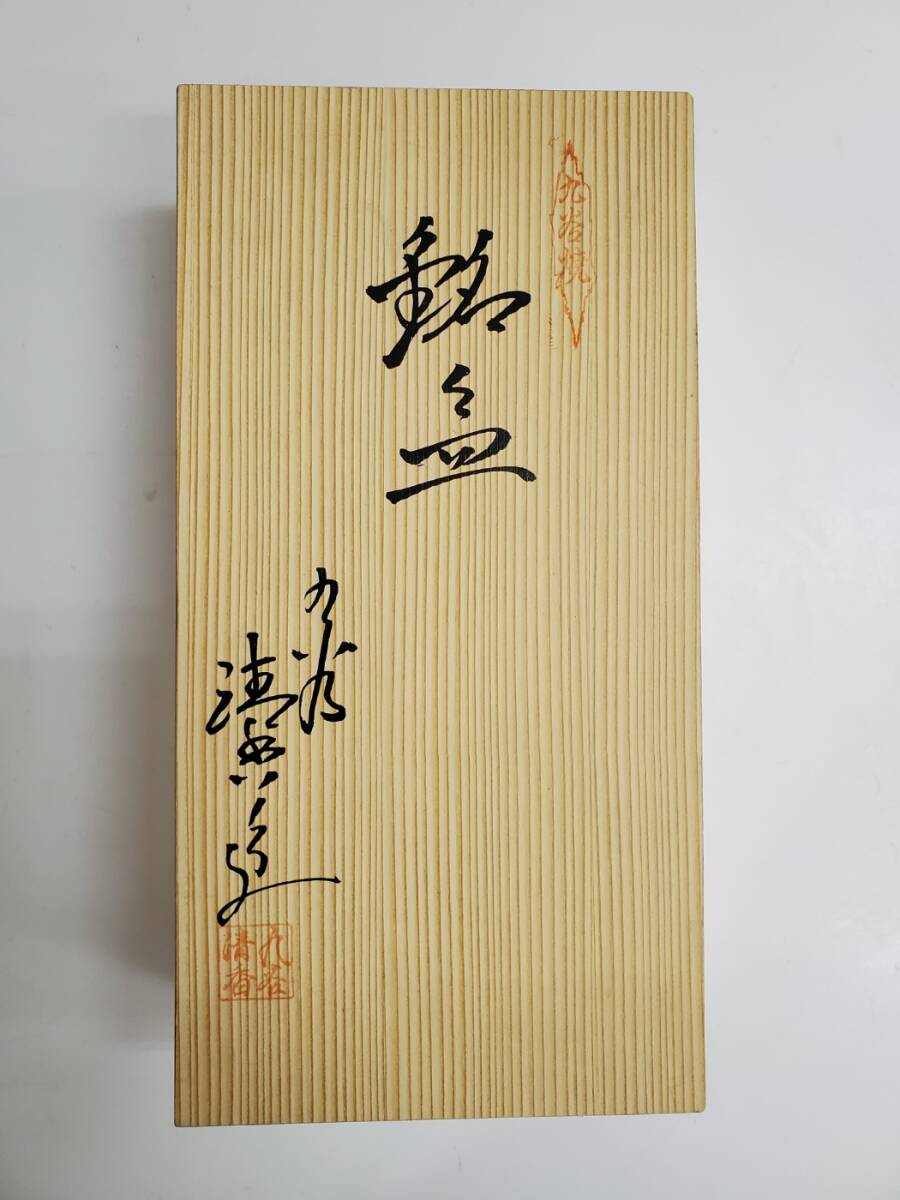 九谷焼
銘々皿
九谷
清香造
九谷
清香